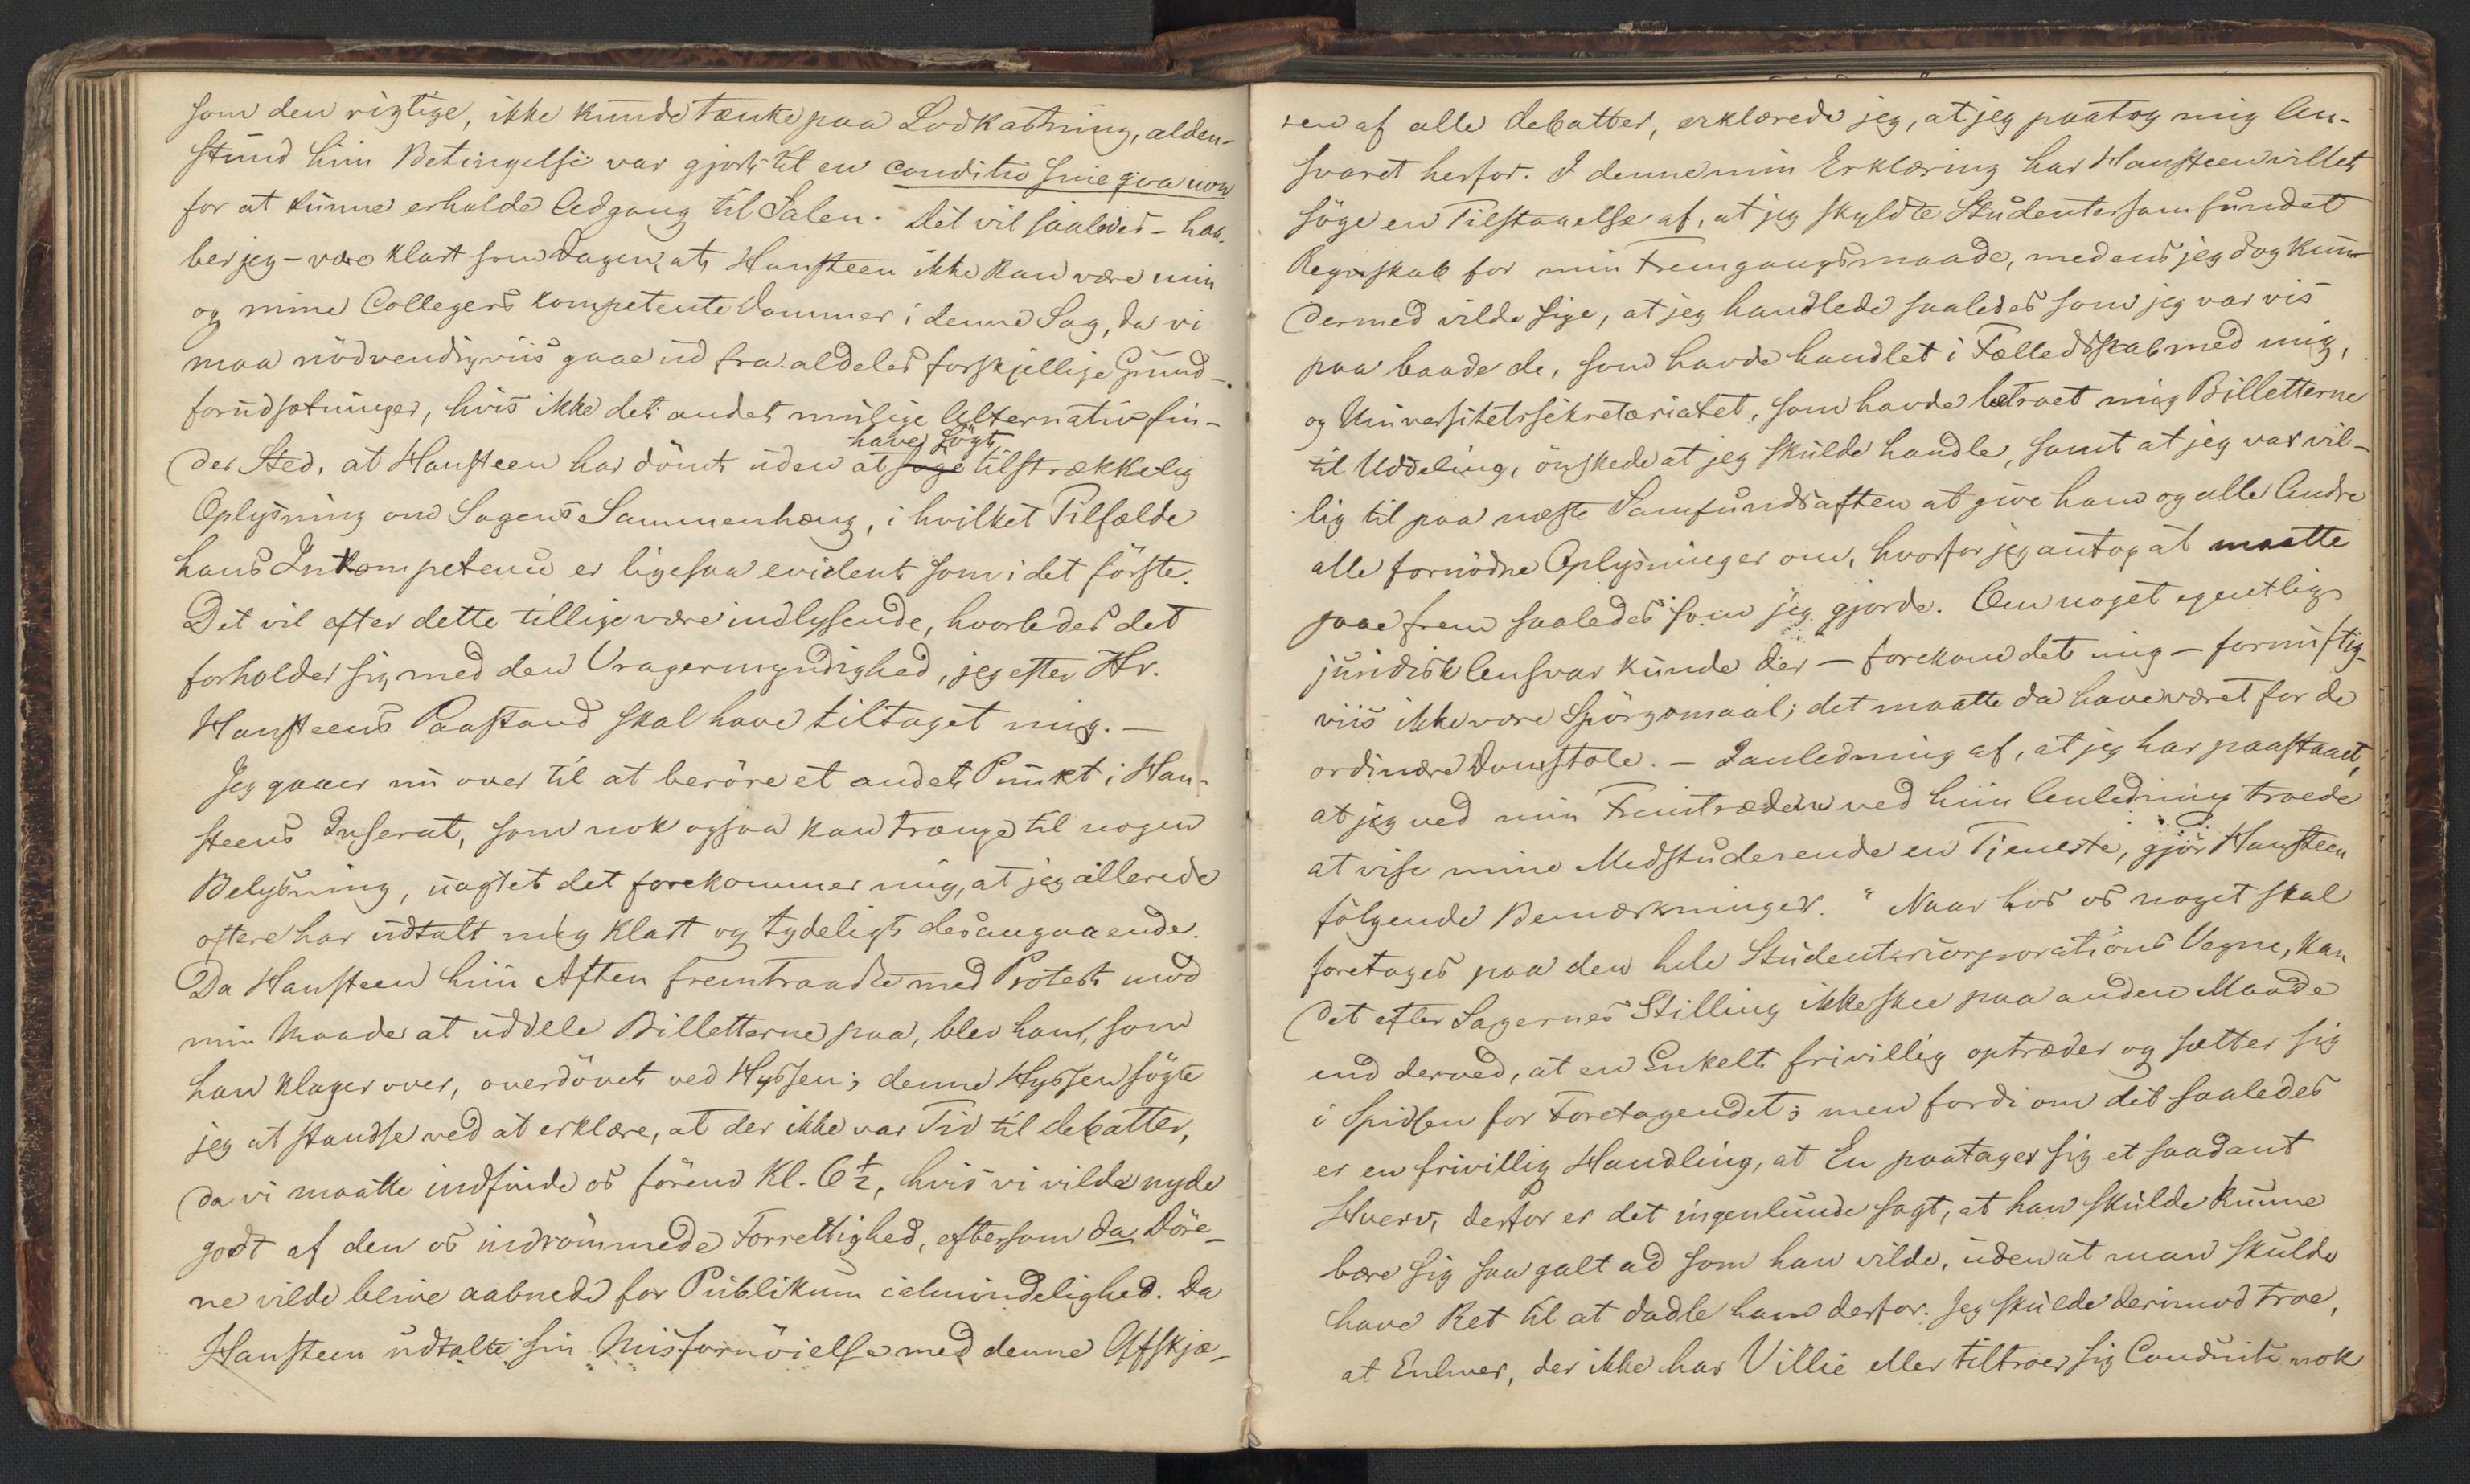 som den rigtige, ikke kunde tænke paa Lodkastning, alden-
stund hiin Betingelse var gjort til en conditio sine qva non
for at kunne erholde Adgang til Salen. Det vil saaledes – haa-
ber jeg – være klart som Dagen, at Hansteen ikke kan være min
og mine Collegers kompetente Dommer i denne Sag, da vi
maa nödvendigviis gaae ud fra aldeles forskjellige Grund-
forudsætninger, hvis ikke det andet mulige Alternativ fin-
der Sted, at Hansteen har dömt uden at søge have sögt tilstrækkelig
Oplysning om Sagens Sammenhæng, i hvilket Tilfælde
hans Inkompetence er ligesaa evident som i det förste.
Det vil efter dette tillige være indlysende, hvorledes det
forholder sig med den Vragermyndighed, jeg efter Hr.
Hansteens Paastand skal have tiltaget mig. –
Jeg gaaer nu over til at beröre et andet Punkt i Han-
steens Inserat, som nok ogsaa kan trænge til nogen
Belysning, uagtet det forekommer mig, at jeg allerede
oftere har udtalt mig klart og tydeligt desangaaende.
Da Hansteen hiin Aften fremtraadte med Protest mod
min Maade at uddele Billetterne paa, blev hans, som
han klager over, overdövet ved Hyssen; denne Hyssen sögte
jeg at standse ved at erklære, at der ikke var Tid til Debatter,
da vi maatte indfinde os förend Kl. 6½, hvis vi vilde nyde
godt af den os indrömmede Forrettighed, eftersom da Döre-
ne vilde blive aabnede for Publikum ialmindelighed. Da
Hansteen udtalte sin Misfornöielse med denne Afskjæ-
ren af alle Debatter, erklærede jeg, at jeg paatog mig An-
svaret herfor. I denne min Erklæring har Hansteen villet
söge en Tilstaaelse af, at jeg skyldte Studentersamfundet
Regnskab for min Fremgangsmaade, medens jeg dog kun
dermed vilde sige, at jeg handlede saaledes som jeg var vis
paa baade de, som havde handlet i Fælledsskab med mig,
og Universitetssekretariatet, som havde betroet mig Billetterne
til Uddeling, önskede at jeg skulde handle, samt at jeg var vil-
lig til paa næste Samfundsaften at give ham og alle Andre
alle fornödne Oplysninger om, hvorfor jeg antog at maatte
gaae frem saaledes som jeg gjorde. Om noget egentlig
juridisk Ansvar kunde der – forekom det mig – fornuftig-
viis ikke være Spörgsmaal; det maatte da have været for de
ordinære Domstole. – I anledning af, at jeg har paastaaet,
at jeg ved min Fremtræden ved hiin Anledning troede
at vise mine Medstuderende en Tjeneste, gjör Hansteen
fölgende Bemærkninger. "Naar hos os noget skal
foretages paa den hele Studentercorporations Vegne, kan
det efter Sagernes Stilling ikke skee paa anden Maade
end derved, at en Enkelt frivillig optræder og sætter sig
i Spidsen for Foretagendet; men fordi om det saaledes
er en frivillig Handling, at En paatager sig et saadant
Hverv, derfor er det ingenlunde sagt, at han skulde kunne
bære sig saa galt ad som han vilde, uden at man skulde
have Ret til at dadle ham derfor. Jeg skulde derimod troe,
at Enhver, der ikke har Villie eller tiltroer sig Conduite nok